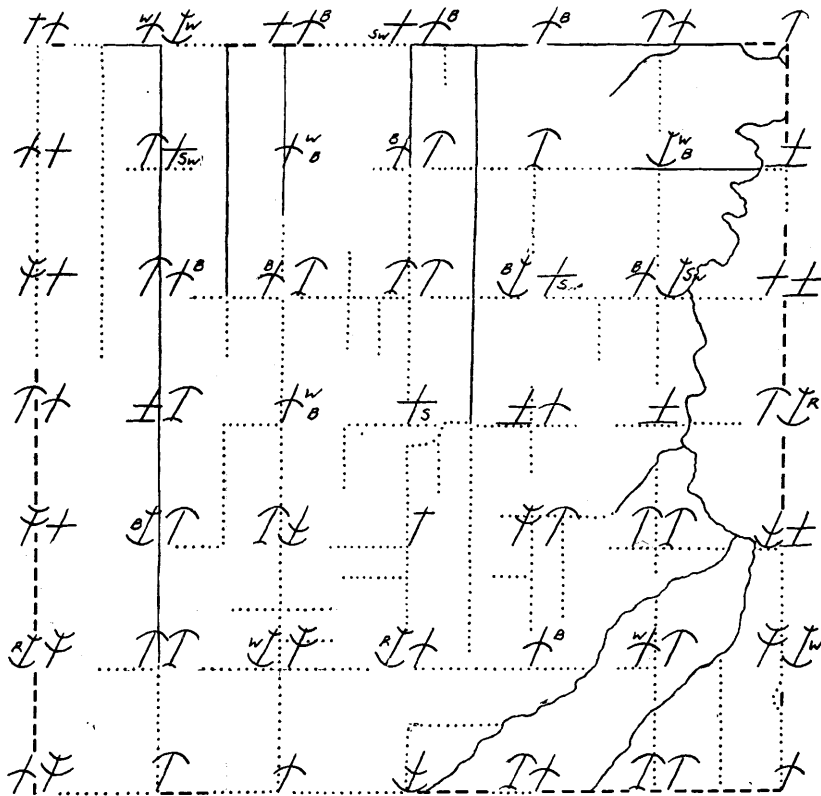 W W B Sw B B
Sw W B B W B
B B B S B Sw
W B S R
B
R W R B W W